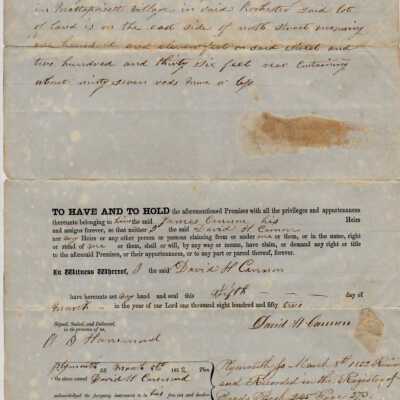 in Mattapoisett Village in said Rochester said lot
of land is on the east side of north street measuring
one hundred and eleven feet on said street and
two hundred and thirty six feet rear containing
about ninty seven rods more or less
TO HAVE AND TO HOLD the aforementioned Premises with all the privileges and appurtenances
thereunto belonging to him the said James Cannon his Heirs
and assigns forever, so that neither I the said David H Cannon
nor my Heirs or any other person or persons claiming from or under me or them, or in the name, right
or stead of me or them, shall or will, by any way or means, have, claim, or demand any right or title
to the aforesaid Premises, or their appurtenances, or to any part or parcel thereof, forever.
In Witness Whereof, I the said David H Cannon
have hereunto set my hand and seal this fifth day of
March in the year of our Lord one thousand eight hundred and fifty two
Signed, Sealed, and Delivered,
in the presence of us,
David H Cannon
Hammond
Plymouth ss March 5th 1852. Then
the above named David H Cannon
acknowledged the foregoing instrument to be his free act and deed
Plymouth Ss March 8th 1852
and Recorded in the Registry of
Deeds Book 245 Page 273